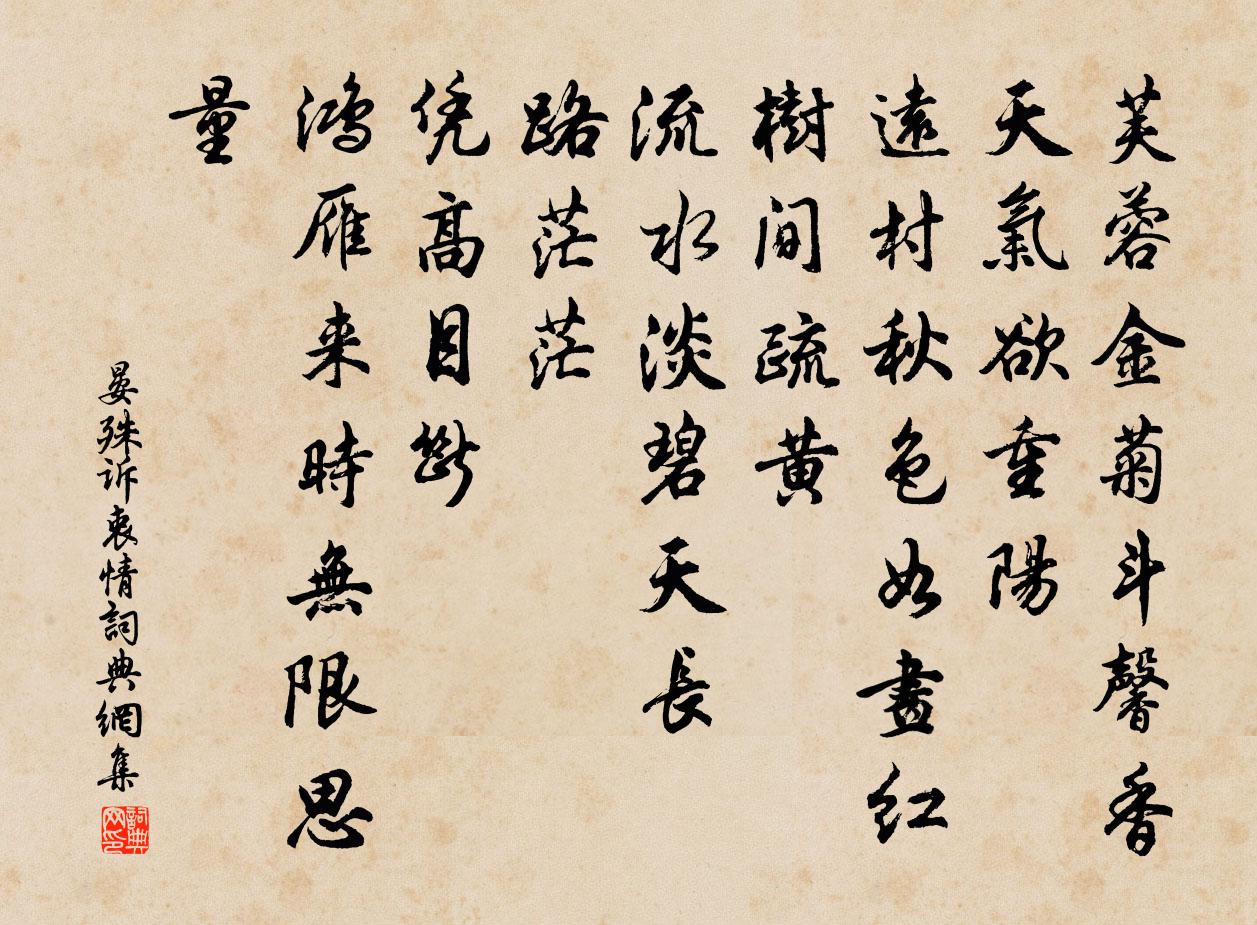 芙蓉金菊斗馨香
天氣欲重陽
遠村秋色如畫紅
樹間疏黄
流水淡碧天長
路茫茫
凭高目斷
鴻雁来時無限思
量
晏殊诉衷情詞典網集
詞典网印